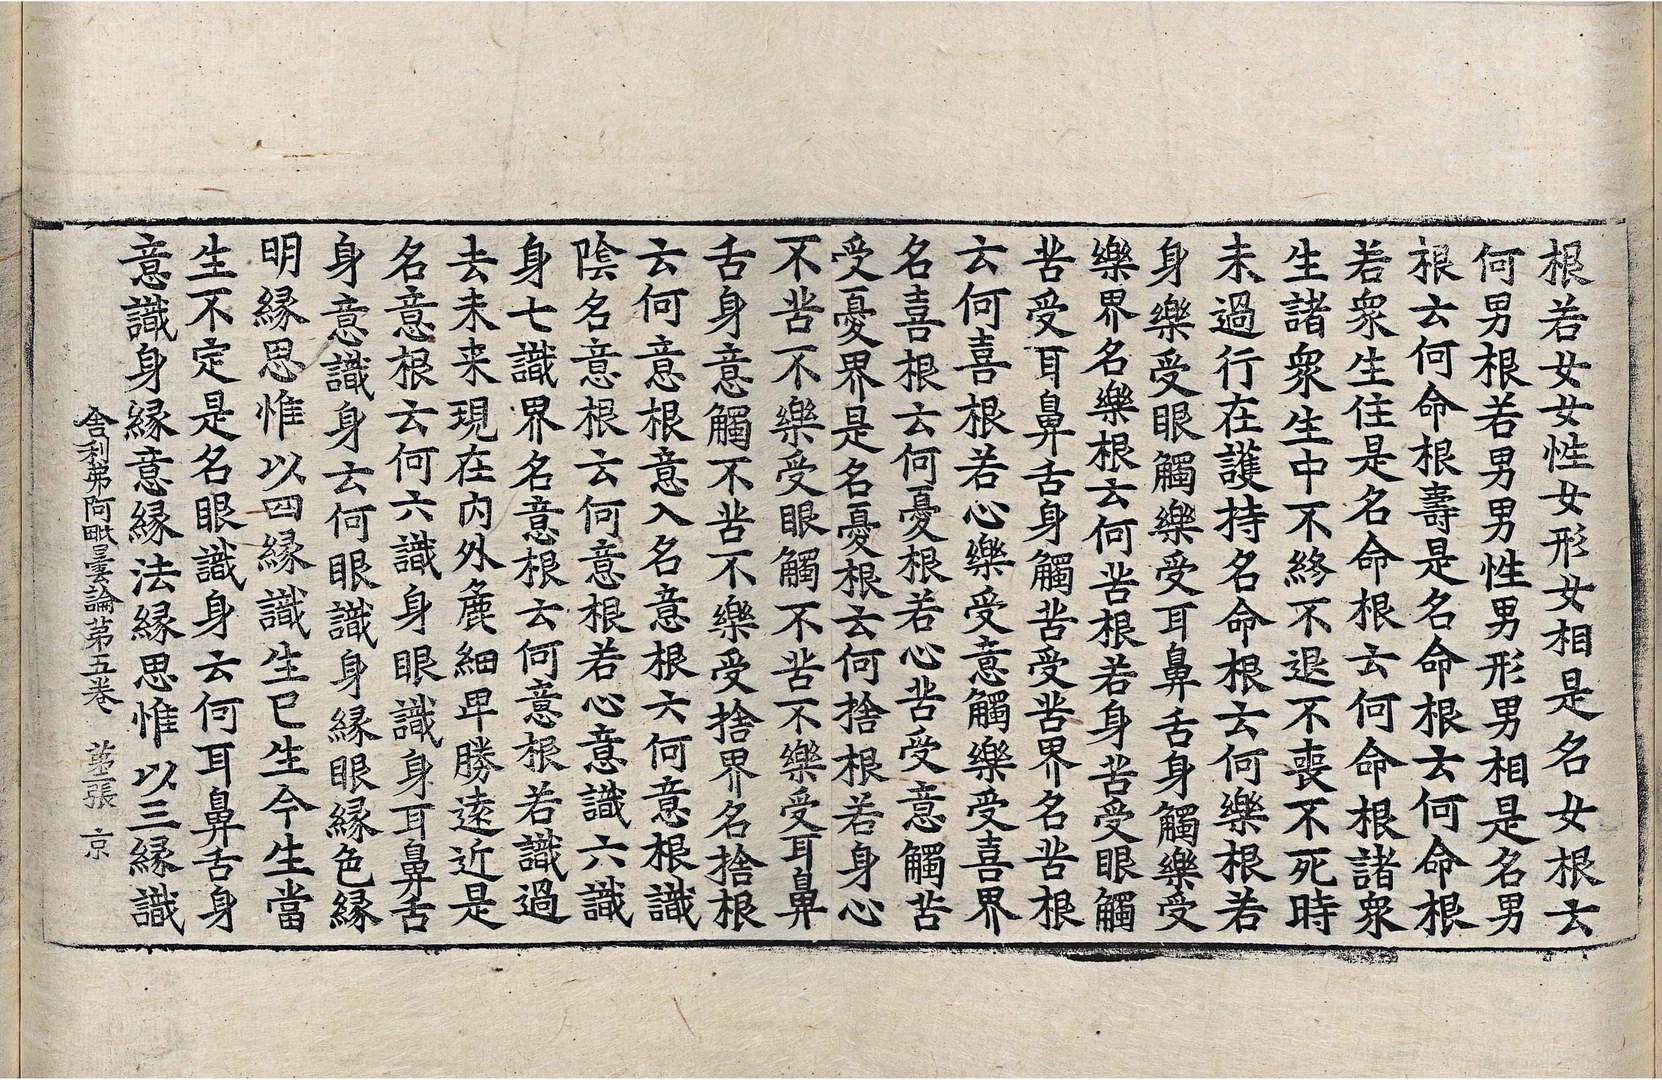 根若女女性女形女相是名女根云
何男根若男男性男形男相是名男
根云何命根壽是名命根云何命根
若衆生住是名命根云何命根諸衆
生諸衆生中不終不退不喪不死時
未過行在護持名命根云何樂根若
身樂受眼觸樂受耳鼻舌身觸樂受
樂界名樂根云何苦根若身苦受眼觸
苦受耳鼻舌身觸苦受苦界名苦根
云何喜根若心樂受意觸樂受喜界
名喜根云何憂根若心苦受意觸苦
受憂界是名憂根云何捨根若身心
不苦不樂受眼觸不苦不樂受耳鼻
舌身意觸不苦不樂受捨界名捨根
云何意根意入名意根云何意根識
陰名意根云何意根若心意識六識
身七識界名意根云何意根若識過
去未来現在内外麁細卑勝遠近是
名意根云何六識身眼識身耳鼻舌
身意識身云何眼識身縁眼縁色縁
明縁思惟以四縁識生已生今生當
生不定是名眼識身云何耳鼻舌身
意識身縁意縁法縁思惟以三縁識
舍利弗阿毗曇論第五卷 第二張 京